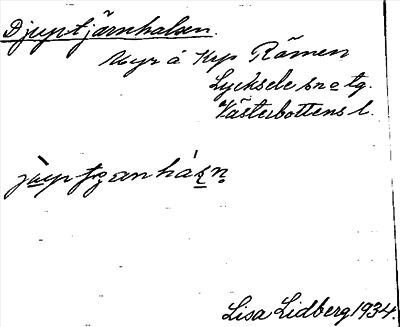 Djuptjärnhalsen.
Myr å Krp Råmen
Lycksele sn o tg.
Västerbottens l.
Lisa Lidberg 1934.